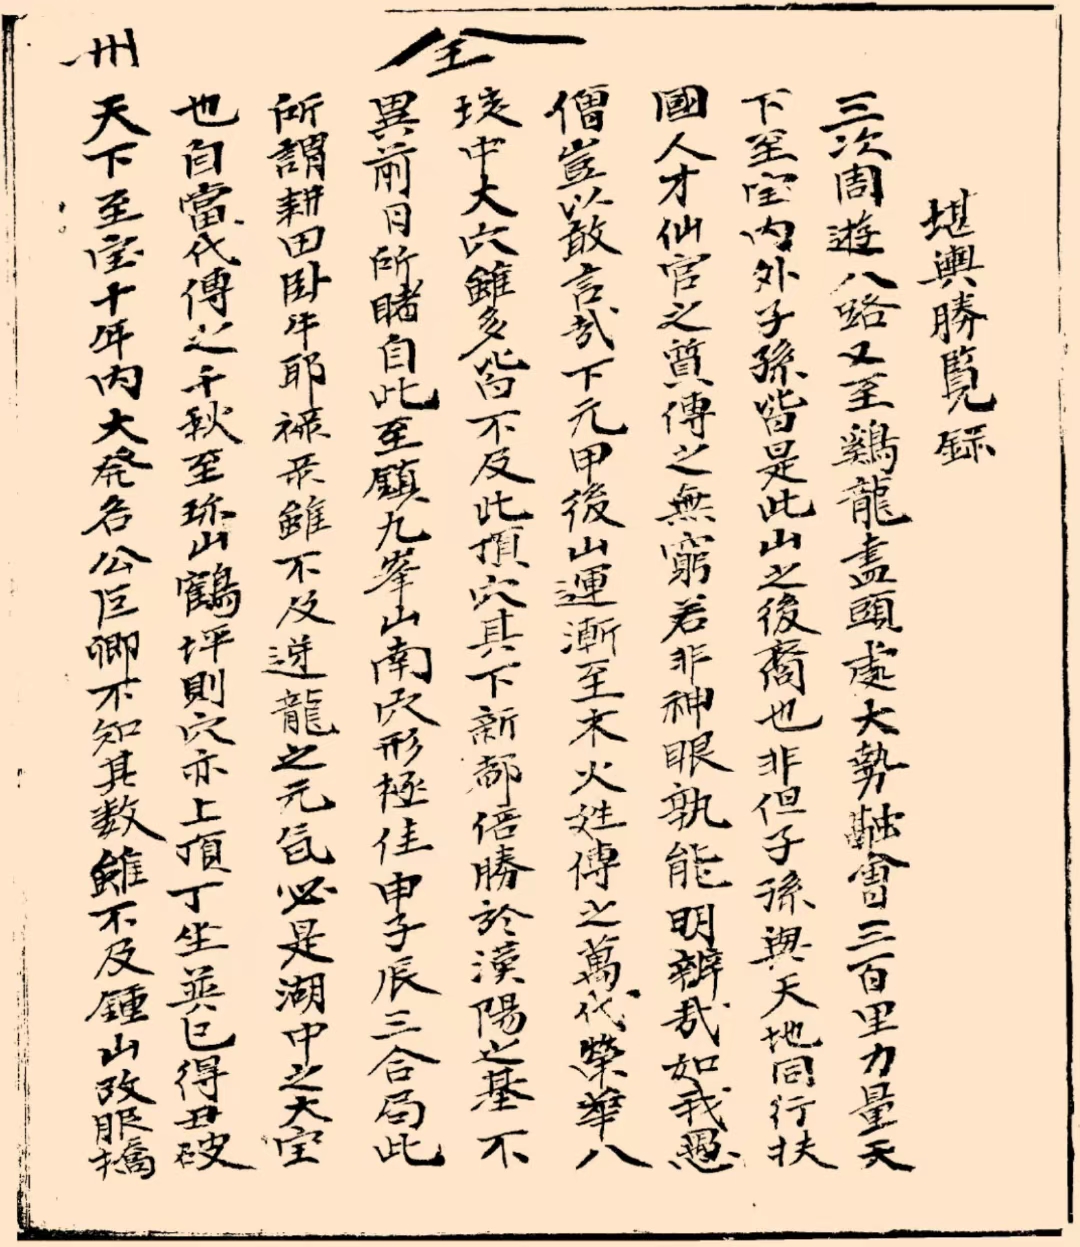 堪輿勝覧録
三次周遊八路又至鷄龍盡頭處大勢融會三百里力量天
下至宝内外子孫皆是此山之後裔也非但子孫與天地同行扶
國人才仙官之質傳之無窮若非神眼孰能明辨哉如我愚
僧豈以敢言哉下元甲後山運漸至木火姓傳之萬代榮華八
垓中大穴雖多皆不及此頂穴其下新都倍勝於漢陽之基不
異前日所睹自此至鎮九峯山南穴形極佳申子辰三合局此
所謂耕田卧牛耶祿呆雖不及逆龍之元氣必是湖中之大宝
也自當代傳之千秋至珎山鶴坪則穴亦上頂丁坐巽巳得丑破
天下至宝十年内大発名公巨卿不知其数雖不及鍾山改服擒
全
王
州